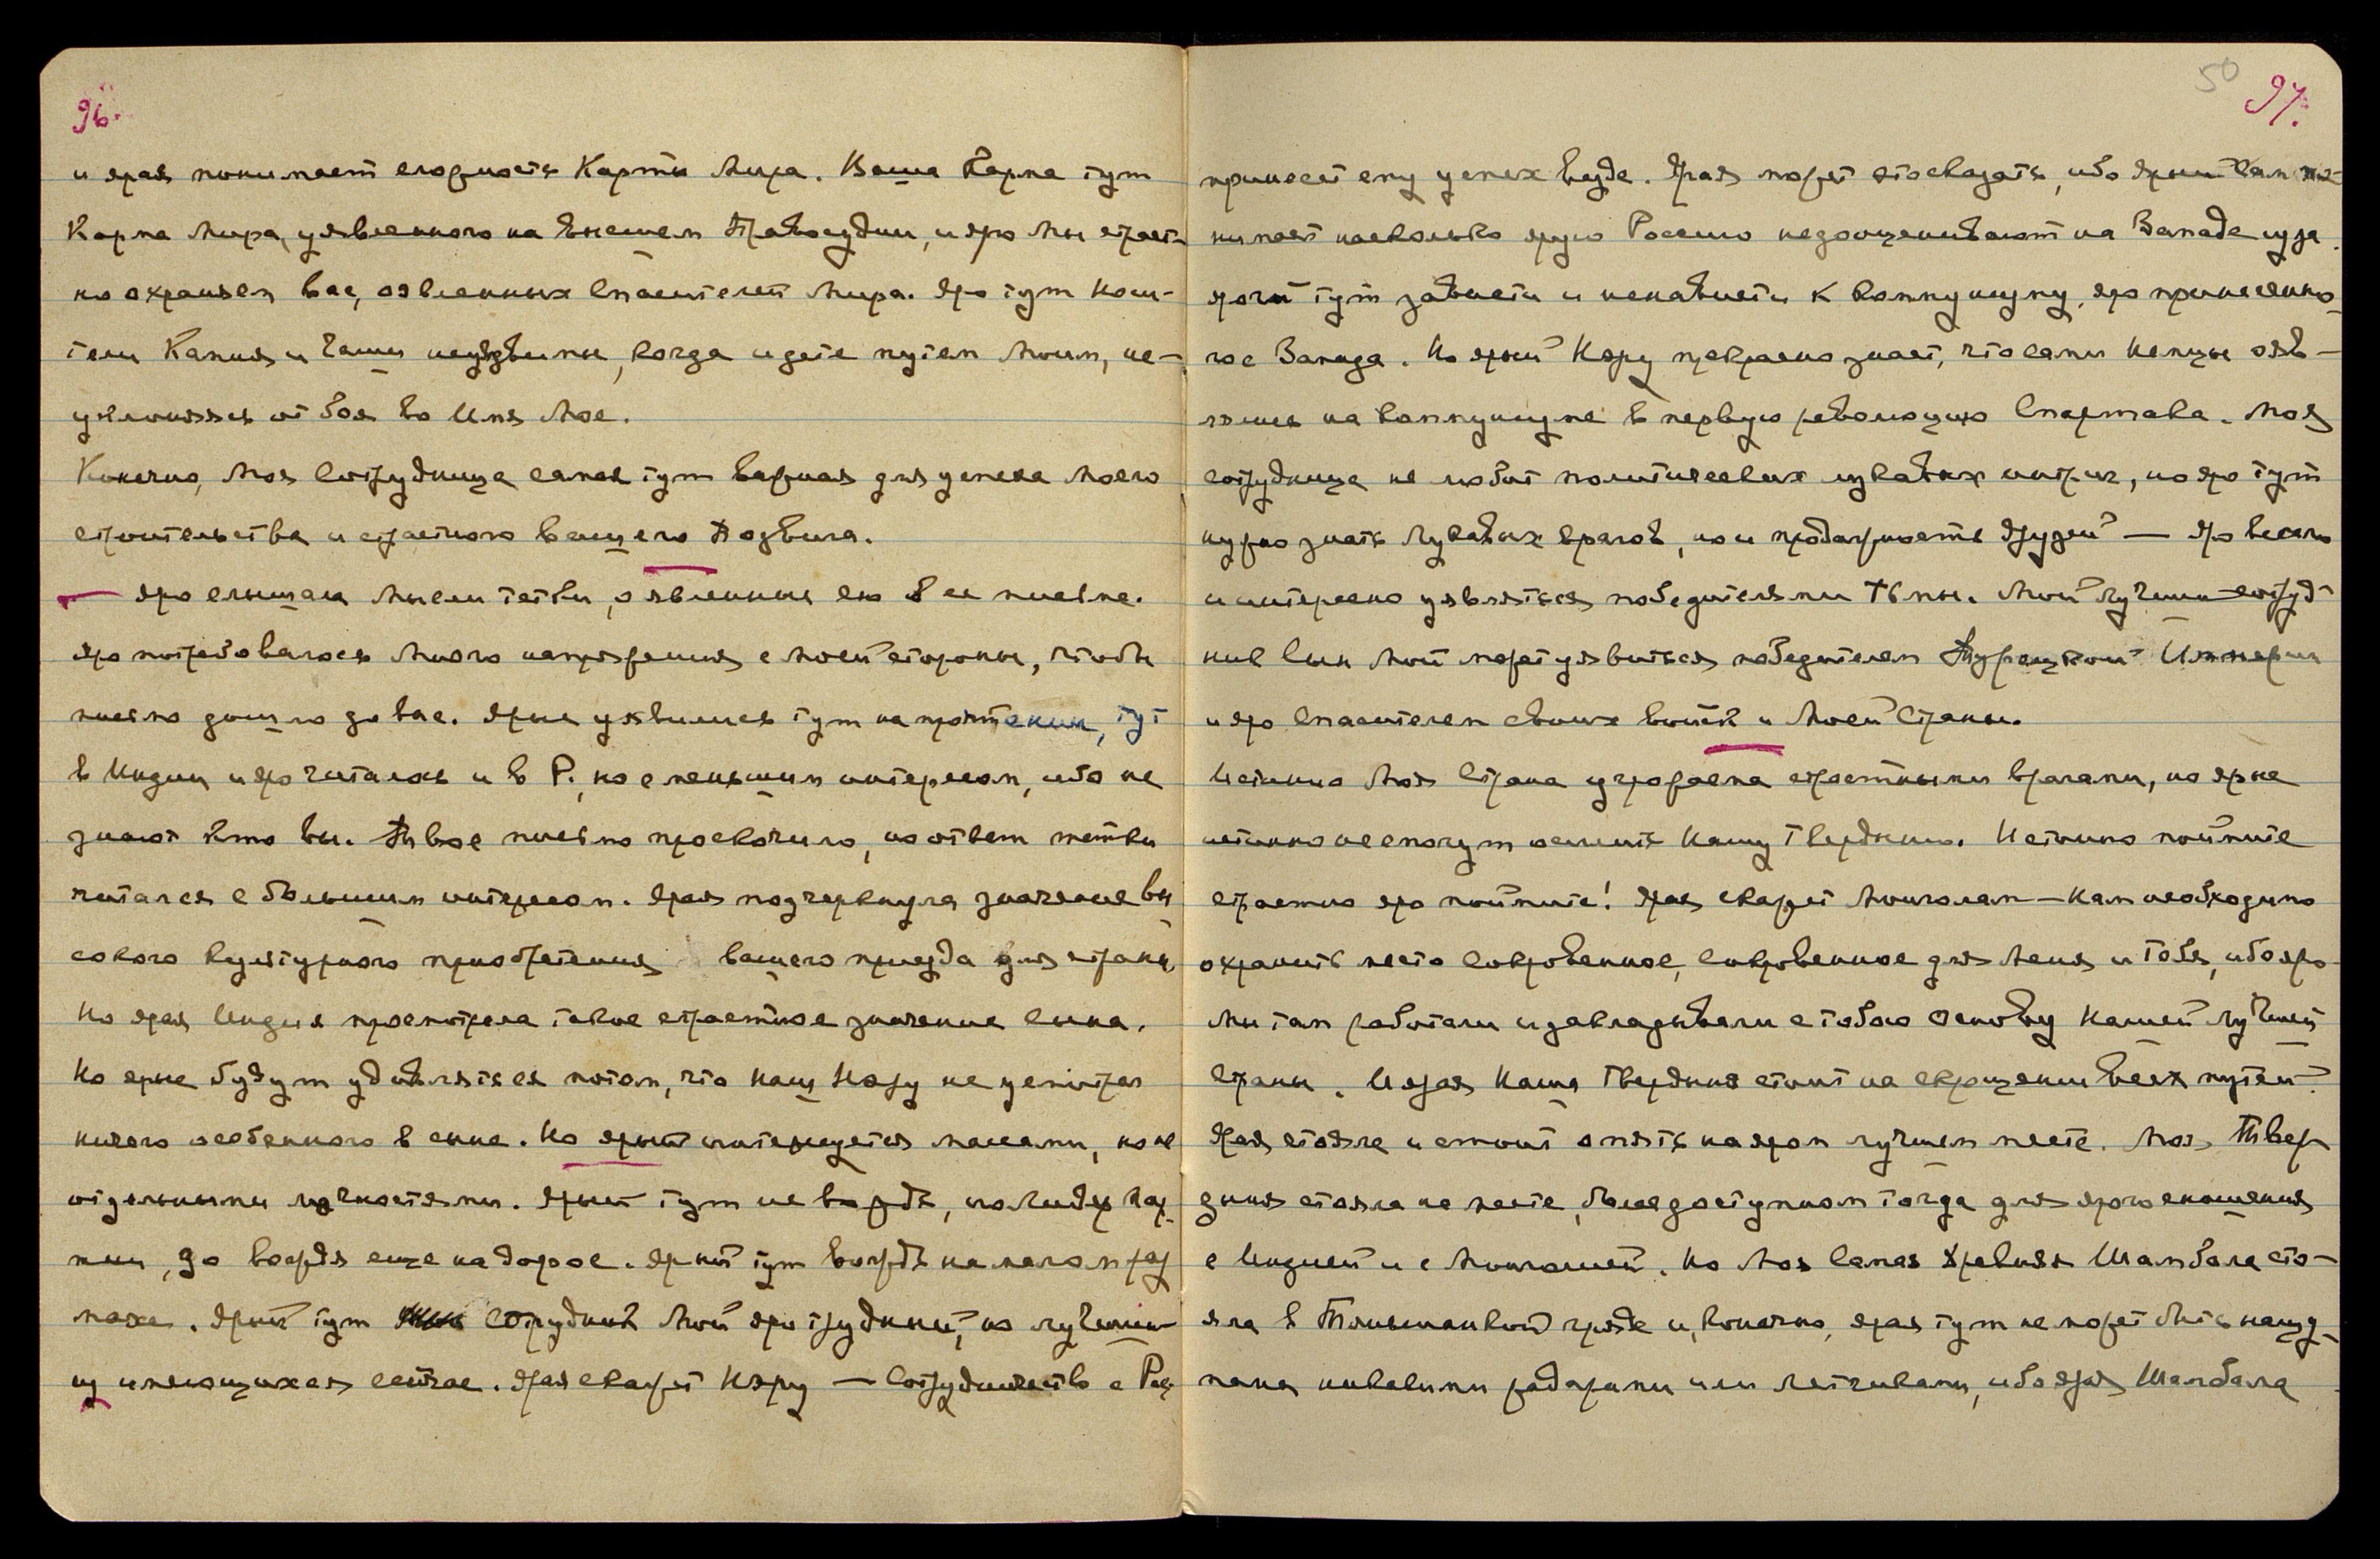 96.
и ярая понимает сложность Кармы Мира. Ваша Карма тут
Карма Мира, уявленного на Высшем Правосудии, и яро Мы страст-
но охраняем вас, оявленных Спасителей Мира. Яро тут Носи-
тели Камня и Чаши неуязвимы, когда идете путем Моим, не
уклоняясь от боя во Имя Мое.
Конечно, Моя Сотрудница самая тут важная для успеха Моего
строительства и страстного вашего Подвига.
— Яро слышала мысли тетки, оявленные ею в ее письме.
Яро потребовалось много напряжения с Моей стороны, чтобы
письмо дошло до вас. Ярые уявились тут на прочтении, тут
в Индии и яро читалось и в Р., но с меньшим интересом, ибо не
знают кто вы. Твое письмо проскочило, но ответ тетки
читался с большим интересом. Ярая подчеркнула значение вы-
сокого культурного приобретения вашего приезда для страны,
Но ярая Индия просмотрела такое страстное значение сына.
Но ярые будут удивляться потом, что наш Неру не усмотрел
ничего особенного в сыне. Но ярый интересуется массами, но не
отдельными личностями. Ярый тут не вождь, но лидер пар-
тии, до вождя еще надорос. Ярый тут вождь на малом раз-
махе. Ярый тут сотрудник Мой яро трудный, но лучший
из имеющихся сейчас. Ярая скажет Неру — Сотрудничество с Рос
50
97.
принесет ему успех везде. Ярая может это сказать, ибо ярый сам по-
нимает насколько ярую Россию недооценивают на Западе из за
ярой тут зависти и ненависти к коммунизму, яро принесенно-
го с Запада. Но ярый Неру прекрасно знает, что сами Немцы ояв-
лись на коммунизме в первую революцию Спартака. Моя
сотрудница не любит политических лукавых интриг, но яро тут
нужно знать лукавых врагов, но и продажность друзей — Яро весело
и интересно уявляться победителями тьмы. Мой лучший сотруд-
ник Сын Мой может уявиться победителем Турецкой Империи
и яро Спасителем своих войск и Моей Страны.
Истинно Моя Страна угрожаема страстными врагами, но ярые
истинно не смогут осилить Нашу Твердыню. Истинно поймите
страстно яро поймите! Ярая скажет Монголам — Нам необходимо
охранить место сокровенное, сокровенное для Меня и Тебя, ибо яро
мы там работали и закладывали с тобою основу Нашей Лучшей
Страны. И ярая Наша Твердыня стоит на скрещении всех путей.
Ярая стояла и стоит опять на яром лучшем месте. Моя Твер-
дыня стояла на месте, более доступном тогда для ярого сношения
с Индией и с Монголией. Но Моя Самая Древняя Шамбала сто-
яла в грязе и, конечно, ярая тут не может быть най­де­
мана никакими радарами или летчиками, ибо ярая Шамбала